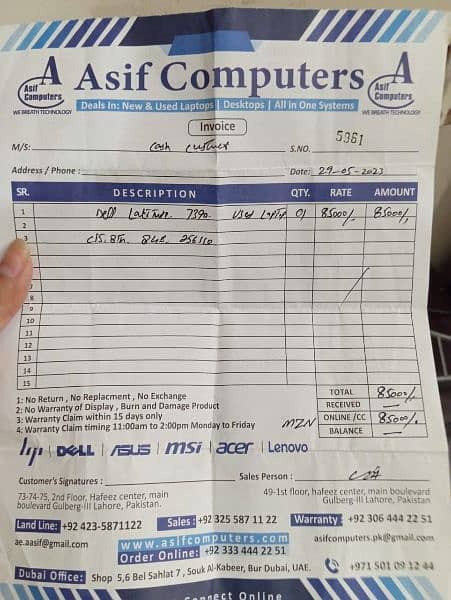 A Asif Computers A
Asif Computers
Asif Computers
WE BREATH TECHNOLOGY
Deals In: New & Used Laptops | Desktops | All in One Systems
WE BREATH TECHNOLOGY
Invoice
M/S: Cash Customer S.NO. 5961
Address / Phone : Date: 29-05-2023
SR. DESCRIPTION QTY. RATE AMOUNT
1 Dell Latitude 7390 Used Laptop 01 85000/- 85000/-
2
3 8th 256
7
8
9
10
11
12
13
14
15
1: No Return , No Replacment , No Exchange
2: No Warranty of Display , Burn and Damage Product
3: Warranty Claim within 15 days only
4: Warranty Claim timing 11:00am to 2:00pm Monday to Friday
TOTAL 85000/-
RECEIVED
MZN ONLINE /CC 85000/-
BALANCE
hp | DELL | ASUS | msi | acer | Lenovo
Customer's Signatures : Sales Person :
73-74-75, 2nd Floor, Hafeez center, main boulevard Gulberg-III Lahore, Pakistan.
49-1st floor, hafeez center, main boulevard Gulberg-III Lahore, Pakistan.
Land Line: +92 423-5871122 Sales : +92 325 587 11 22 Warranty : +92 306 444 22 51
ae.aasif@gmail.com www.asifcomputers.com asifcomputers.pk@gmail.com
Order Online: +92 333 444 22 51
Dubai Office: Shop 5,6 Bel Sahlat 7 , Souk Al-Kabeer, Bur Dubai, UAE. +971 501 09 12 44
Connect Online